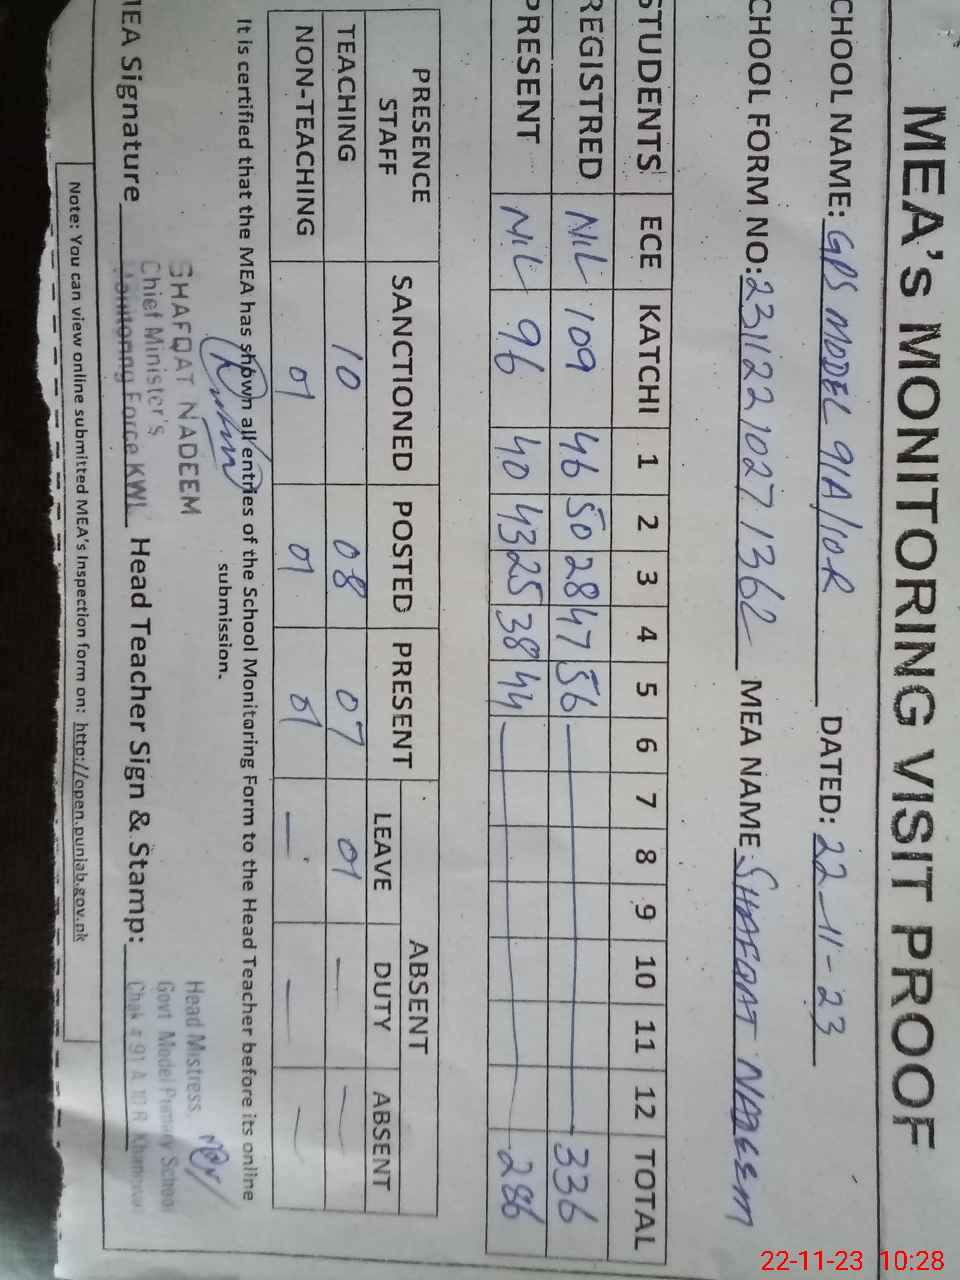 MEA's MONITORING VISIT PROOF
CHOOL NAME: GPS MODEL 91A/10R DATED: 22-11-23
CHOOL FORM NO: 23112210271362 MEA NAME: SHAFQAT NADEEM
STUDENTS ECE KATCHI 1 2 3 4 5 6 7 8 9 10 11 12 TOTAL
REGISTRED NIL 109 46 50 28 47 56 336
PRESENT NIL 96 40 43 25 38 44 286
PRESENCE STAFF SANCTIONED POSTED PRESENT ABSENT
LEAVE DUTY ABSENT
TEACHING 10 08 07 01 — —
NON-TEACHING 01 01 01 — — —
It is certified that the MEA has shown all entries of the School Monitoring Form to the Head Teacher before its online
submission.
SHAFQAT NADEEM
Chief Minister's
Monitoring Force KWL
Head Mistress
Govt Model Primary School
Chak # 91 A 10 R Khanewal
MEA Signature Head Teacher Sign & Stamp:
Note: You can view online submitted MEA's Inspection form on: http://open.punjab.gov.pk
22-11-23 10:28